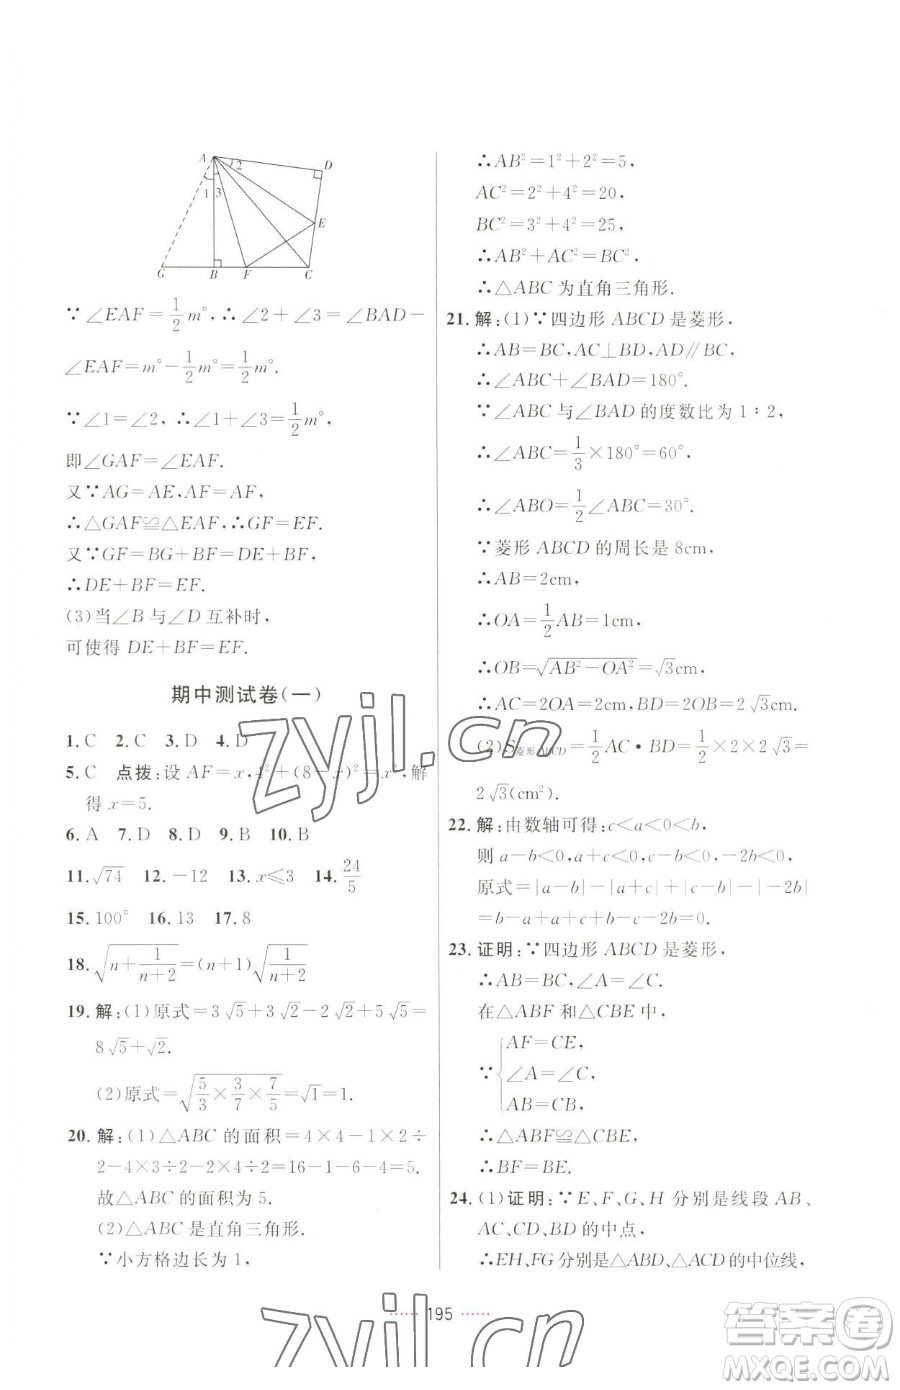 A
D
2
1
3
E
G
B
F
C
∵∠EAF=\frac{1}{2}m°,∴∠2+∠3=∠BAD-
∠EAF=m°-\frac{1}{2}m°=\frac{1}{2}m°.
∵∠1=∠2,∴∠1+∠3=\frac{1}{2}m°,
即∠GAF=∠EAF.
又∵AG=AE,AF=AF,
∴△GAF≌△EAF,∴GF=EF.
又∵GF=BG+BF=DE+BF,
∴DE+BF=EF.
(3)当∠B与∠D互补时,
可使得DE+BF=EF.
期中测试卷(一)
1.C 2.C 3.D 4.D
5.C 点拨:设AF=x,4²+(8-x)²=x²,解
得x=5.
6.A 7.D 8.D 9.B 10.B
11.√74 12.-12 13.x≤3 14.\frac{24}{5}
15.100° 16.13 17.8
18.√(n+\frac{1}{n+2})=(n+1)√(\frac{1}{n+2})
19.解:(1)原式=3√5+3√2-2√2+5√5=
8√5+√2.
(2)原式=√(\frac{5}{3}×\frac{3}{7}×\frac{7}{5})=√1=1.
20.解:(1)△ABC的面积=4×4-1×2÷
2-4×3÷2-2×4÷2=16-1-6-4=5.
故△ABC的面积为5.
(2)△ABC是直角三角形.
∵小方格边长为1,
∴AB²=1²+2²=5,
AC²=2²+4²=20,
BC²=3²+4²=25,
∴AB²+AC²=BC²,
∴△ABC为直角三角形.
21.解:(1)∵四边形ABCD是菱形,
∴AB=BC,AC⊥BD,AD∥BC,
∴∠ABC+∠BAD=180°.
∵∠ABC与∠BAD的度数比为1:2,
∴∠ABC=\frac{1}{3}×180°=60°,
∴∠ABO=\frac{1}{2}∠ABC=30°.
∵菱形ABCD的周长是8cm,
∴AB=2cm,
∴OA=\frac{1}{2}AB=1cm,
∴OB=√(AB²-OA²)=√3cm,
∴AC=2OA=2cm,BD=2OB=2√3cm;
(2)S菱形ABCD=\frac{1}{2}AC·BD=\frac{1}{2}×2×2√3=
2√3(cm²).
22.解:由数轴可得:c<a<0<b,
则a-b<0,a+c<0,b-c>0,-2b<0,
原式=|a-b|-|a+c|+|b-c|-|-2b|
=b-a+a+c+b-c-2b=0.
23.证明:∵四边形ABCD是菱形,
∴AB=BC,∠A=∠C.
在△ABF和△CBE中,
AF=CE,
∵{∠A=∠C,
AB=CB,
∴△ABF≌△CBE,
∴BF=BE.
24.(1)证明:∵E、F、G、H分别是线段AB、
AC、CD、BD的中点,
∴EH、FG分别是△ABD、△ACD的中位线,
195
zyjl.cn
zyjl.cn
答案圈
MXQE.COM